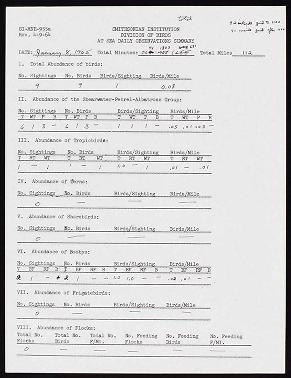 SI-MNH-955a
Rev. 1-9-64
SMITHSONIAN INSTITUTION
DIVISION OF BIRDS
AT SEA DAILY OBSERVATIONS SUMMARY
DATE: January 8, 1965 Total Minutes: Total Miles 112
I. Total Abundance of birds:
No. Sightings No. Birds Birds/Sighting Birds/Mile
9 9 1 0.08
II. Abundance of the Shearwater-Petrel-Albatross Group:
No. Sightings No. Birds Birds/Sighting Birds/Mile
III. Abundance of Tropicbirds:
No. Sightings No. Birds Birds/Sighting Birds/Mile
T RT WT T RT WT T RT WT T RT WT
1 - 1 1 - 1 1.0 - 1 .01 - .01
IV. Abundance of Terns:
No. Sightings No. Birds Birds/Sighting Birds/Mile
0 — — —
V. Abundance of Shorebirds:
No. Sightings No. Birds Birds/Sighting Birds/Mile
0 — — —
VI. Abundance of Boobys:
No. Sightings No. Birds Birds/Sighting Birds/Mile
VII. Abundance of Frigatebirds:
No. Sightings No. Birds Birds/Sighting Birds/Mile
0 — — —
VIII. Abundance of Flocks:
Total No. Total No. Total No. No. Feeding No. Feeding No. Feeding
Flocks Birds F/Mi. Flocks Birds F/Mi.
0 — — — — —